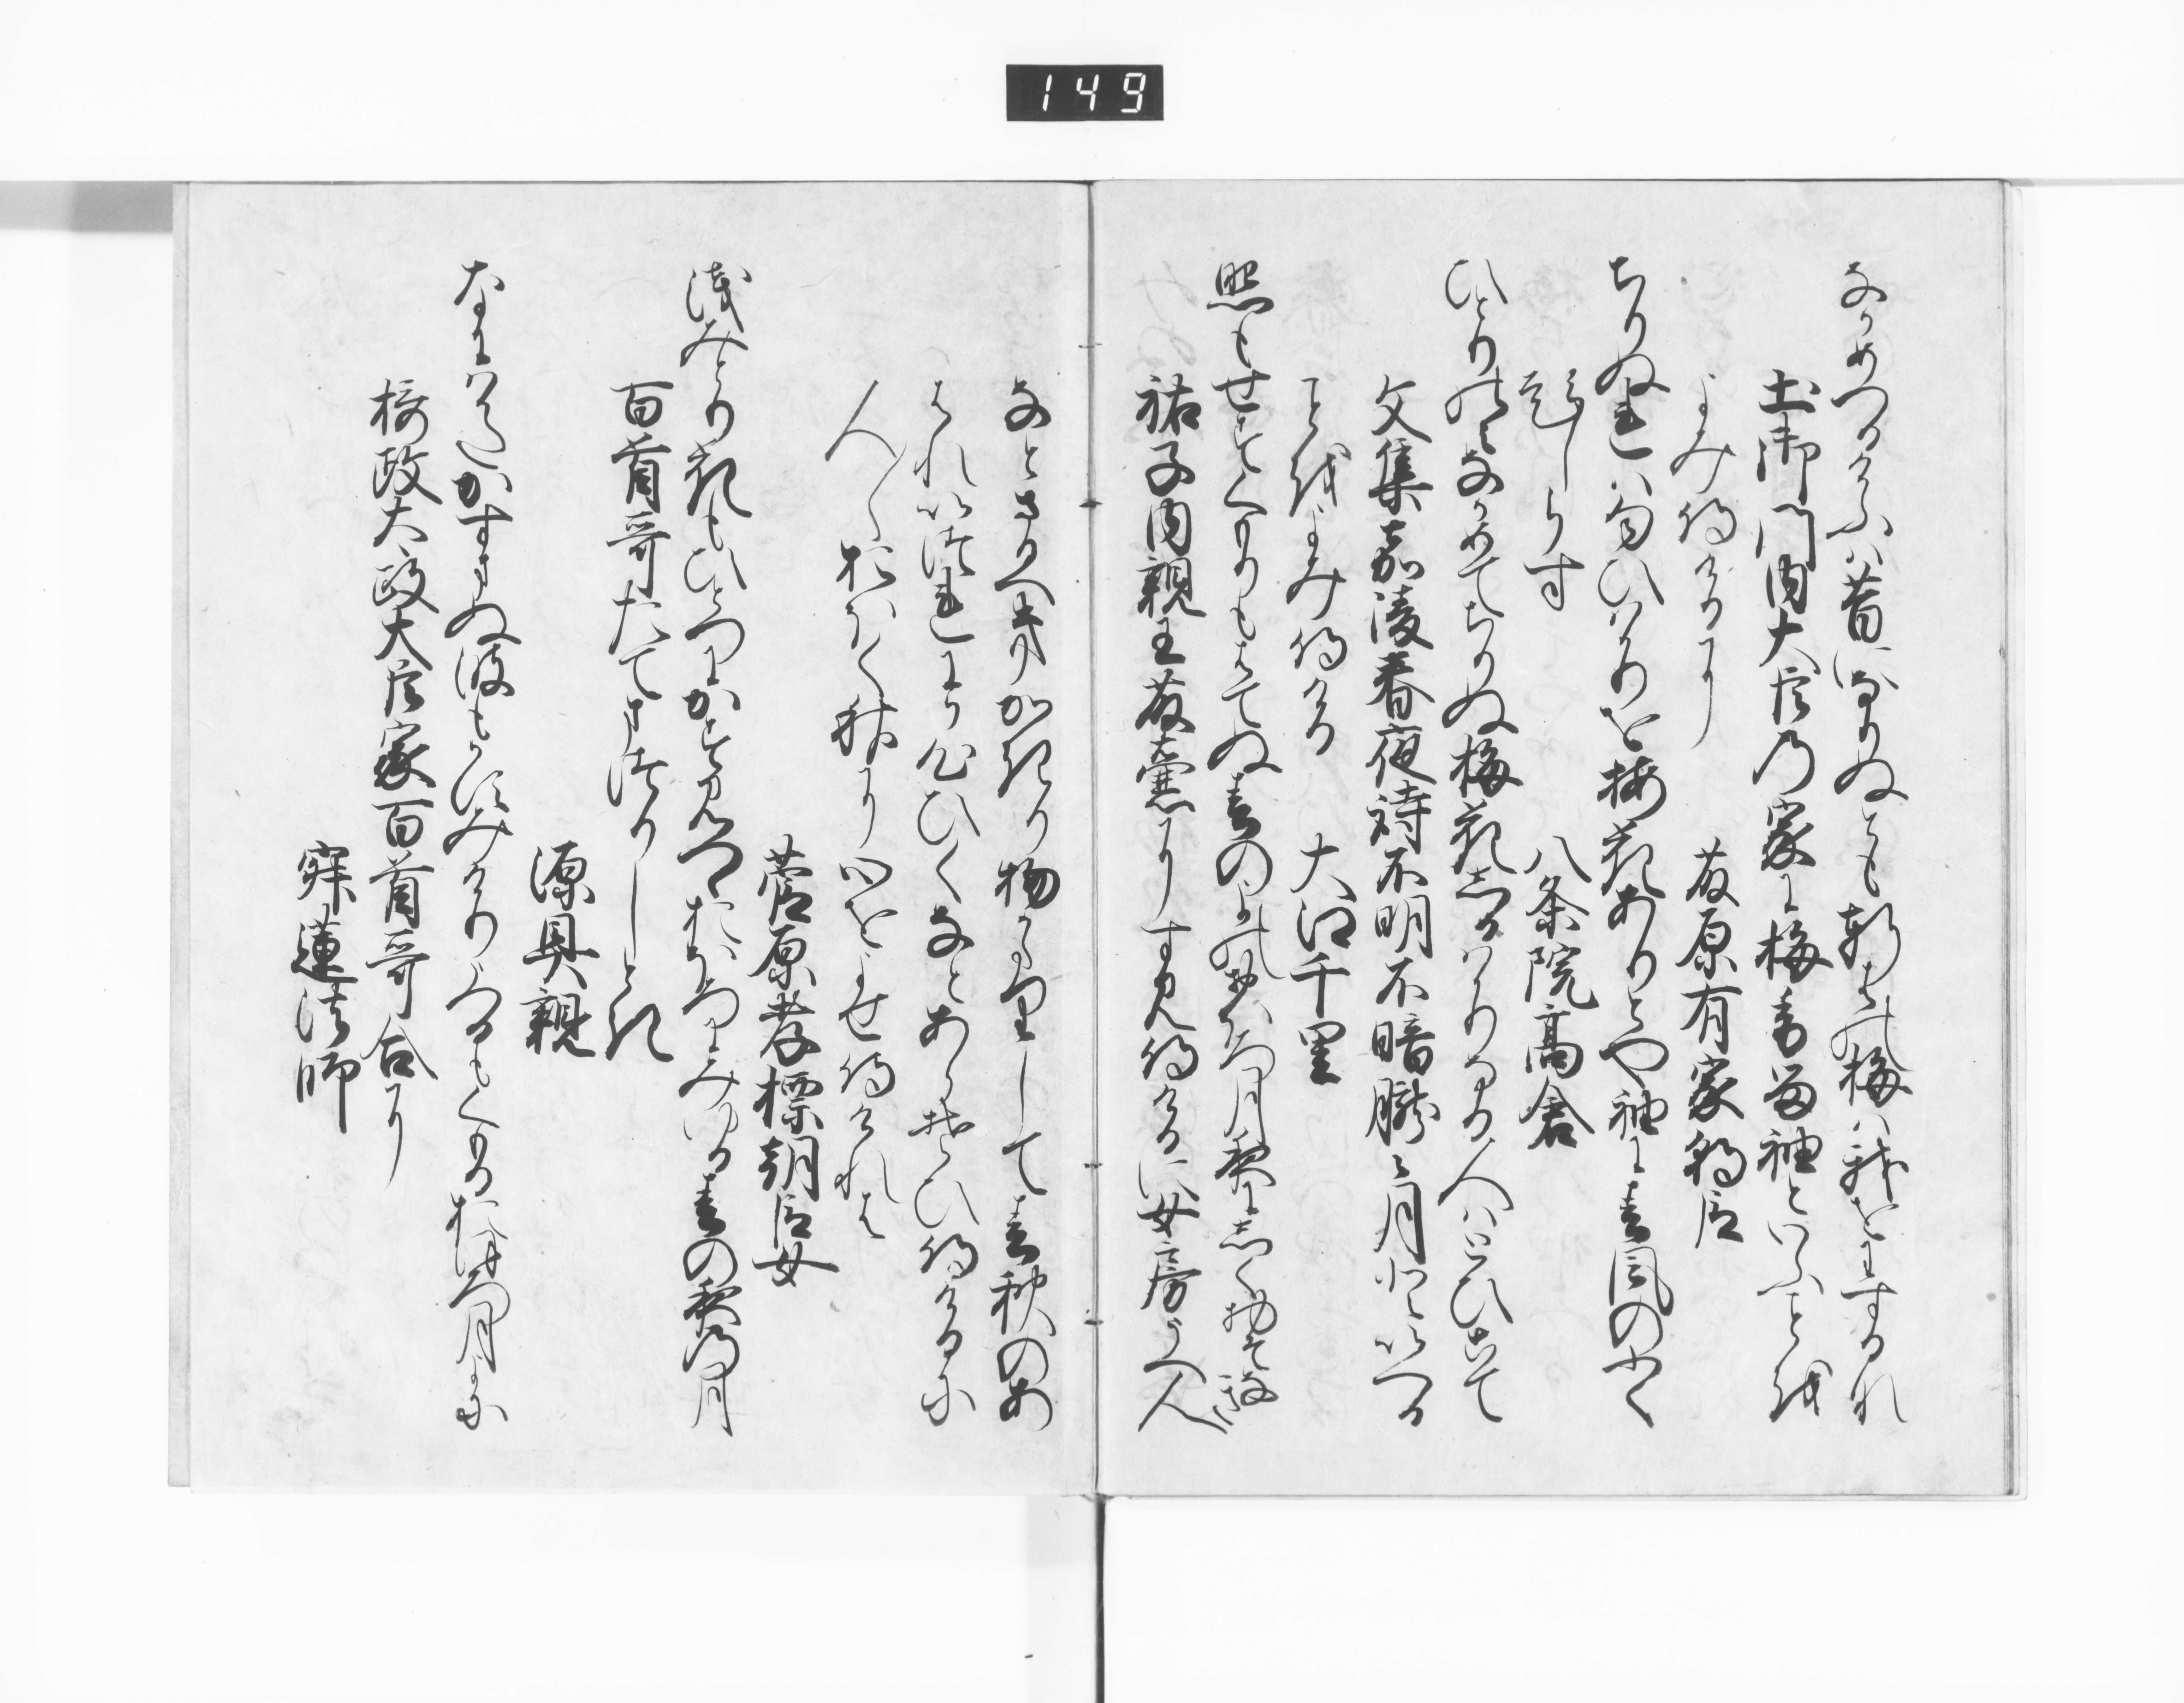 149
なかめつるけふは昔になりぬとも軒はの梅は我をわするな
土御門内大臣の家に梅香留袖といふことを
よみ侍けるに
藤原有家朝臣
ちりぬれは匂ひはかりを梅花ありとや袖に春風の吹
題しらす
八条院高倉
ひとりのみなかめてちりぬ梅花しるはかりなる人はとひこて
文集嘉陵春夜詩不明不暗朧々月といへる
ことをよみ侍ける
大江千里
照もせすくもりもはてぬ春の夜の朧月夜にしく物そなき
祐子内親王藤壷にすみ侍けるに女房うへ人
なとさるへきかきり物かたりして春秋のあ
はれいつれにか心ひくなとあらそひ侍けるに
人々おほく秋に心をよせ侍けれは
菅原孝標朝臣女
浅みとり花もひとつにかすみつゝおほろにみゆる春の夜の月
百首哥たてまつりしとき
源具親
なにはかたかすまぬ波もかすみけりうつるもくもるおほろ月よに
摂政太政大臣家百首哥合に
寂蓮法師